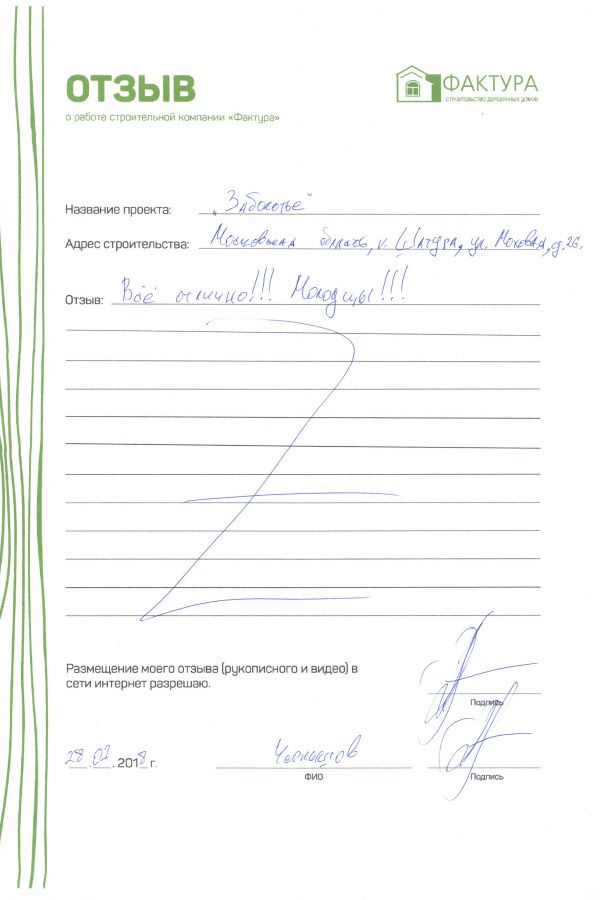 ОТЗЫВ
ФАКТУРА
СТРОИТЕЛЬСТВО ДЕРЕВЯННЫХ ДОМОВ
о работе строительной компании «Фактура»
Название проекта: „Заболотье"
Адрес строительства: Московская область, г. Шатура, ул. Моховая, д.26.
Отзыв: Всё отлично!!! Молодцы!!!
Размещение моего отзыва (рукописного и видео) в
сети интернет разрешаю.
Подпись
28.07.2018 г. Чернышов
ФИО
Подпись